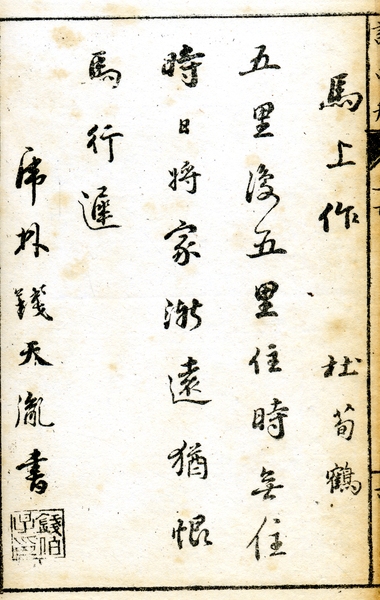 馬上作　杜荀鶴
五里復五里住時無住
時日將家漸遠猶恨
馬行遲
虎林錢天胤書